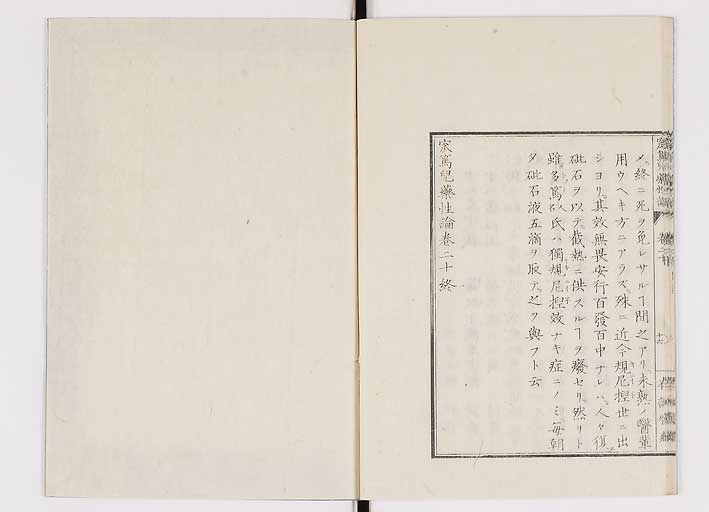 メ終ニ死ヲ免レサルヿ間之アリ未熟ノ醫輩
用ウヘキ方ニアラズ殊ニ近今規尼捏世ニ出
シヨリ其效無畏安行百發百中ナレハ人々復
砒石ヲ以テ截熱ニ供スルヿヲ癈セリ然リト
雖多篤氏ハ獨規尼捏效ナキ症ニノミ毎朝
夕砒石液五滴ヲ服テ之ヲ與フト云
宲篤兒藥性論卷二十終